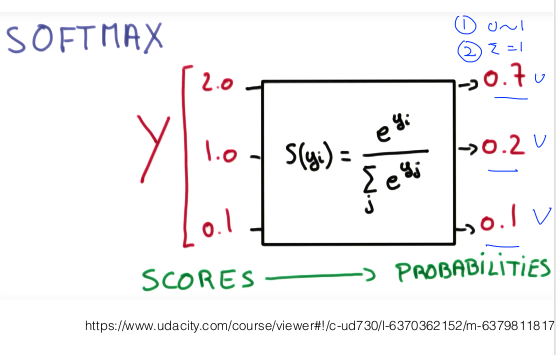 SOFTMAX
① 0~1
② Σ = 1
Y
2.0 → 0.7 ∪
1.0 S(yi) = e^yi / Σj e^yj → 0.2 ∨
0.1 → 0.1 ∨
SCORES → PROBABILITIES
https://www.udacity.com/course/viewer#!/c-ud730/l-6370362152/m-6379811817